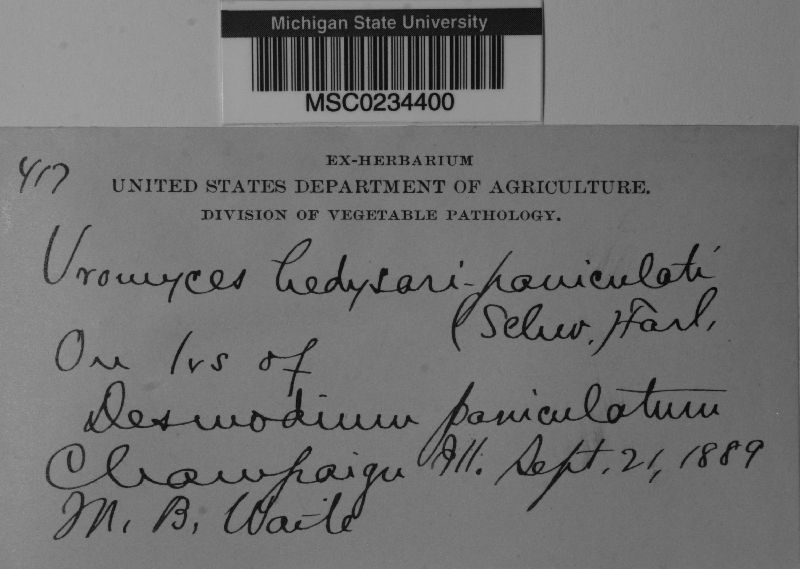 Michigan State University
MSC0234400
417
EX-HERBARIUM
UNITED STATES DEPARTMENT OF AGRICULTURE.
DIVISION OF VEGETABLE PATHOLOGY.
Uromyces hedysari-paniculati
(Schw.) Farl.
On lvs of
Desmodium paniculatum
Champaign Ill. Sept. 21, 1889
M. B. Waite